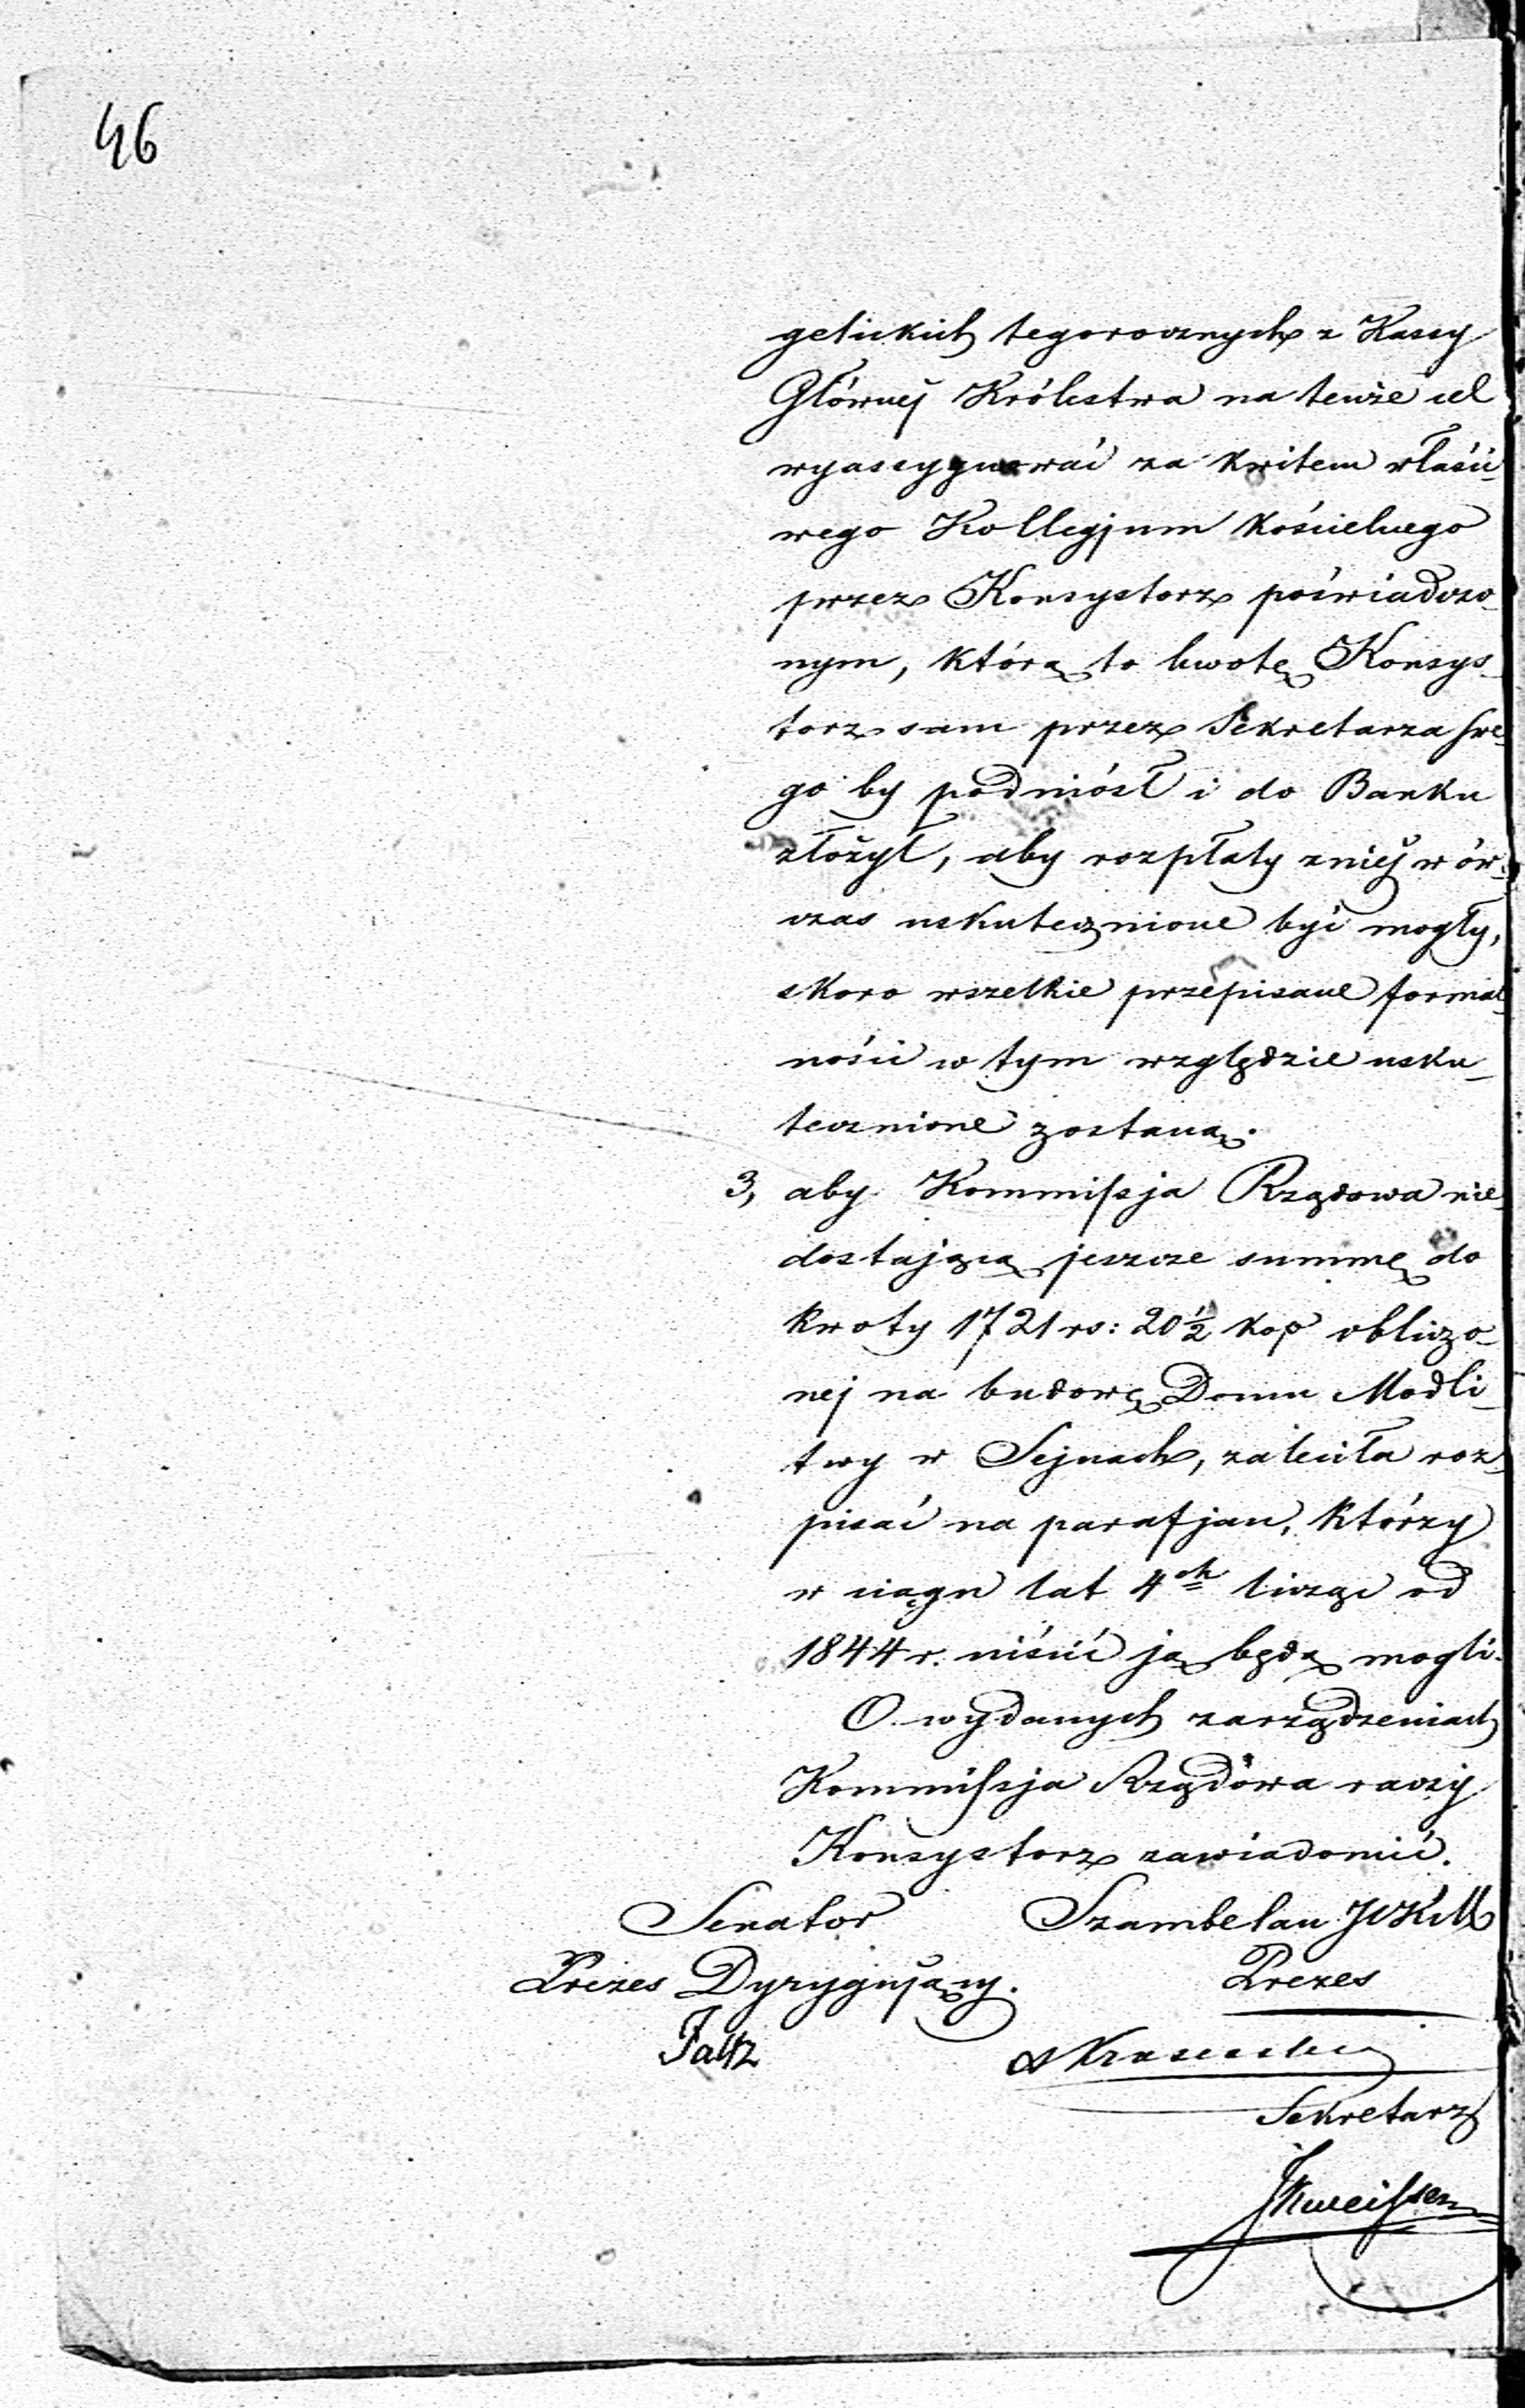 46
gelickich tegorocznych z Kassy
Głównej Królestwa na tenże cel
wyassygnować za kwitem właści-
wego Kollegjum Kościelnego
przez Konsystorz poświadczo-
nym, którą to kwotę Konsys-
torz sam przez Sekretarza swe-
go by podniósł i do Banku
złożył, aby rozpłaty z niej wów-
czas uskutecznione być mogły,
skoro wszelkie przepisane formal-
ności w tym względzie usku-
tecznione zostaną.
3, aby Kommissja Rządowa nie-
dostającą jeszcze summę do
kwoty 1721 rs: 20½ kop obliczo-
nej na budowę Domu Modli-
twy w Sejnach, zaleciła roz-
pisać na parafjan, którzy
w ciągu lat 4ch licząc od
1844 r. uiścić ją będą mogli.
O wydanych zarządzeniach
Kommissja Rządowa raczy
Konsystorz zawiadomić.
Senator Szambelan
Prezes Dyrygujący. Prezes
Faltz
Sekretarz